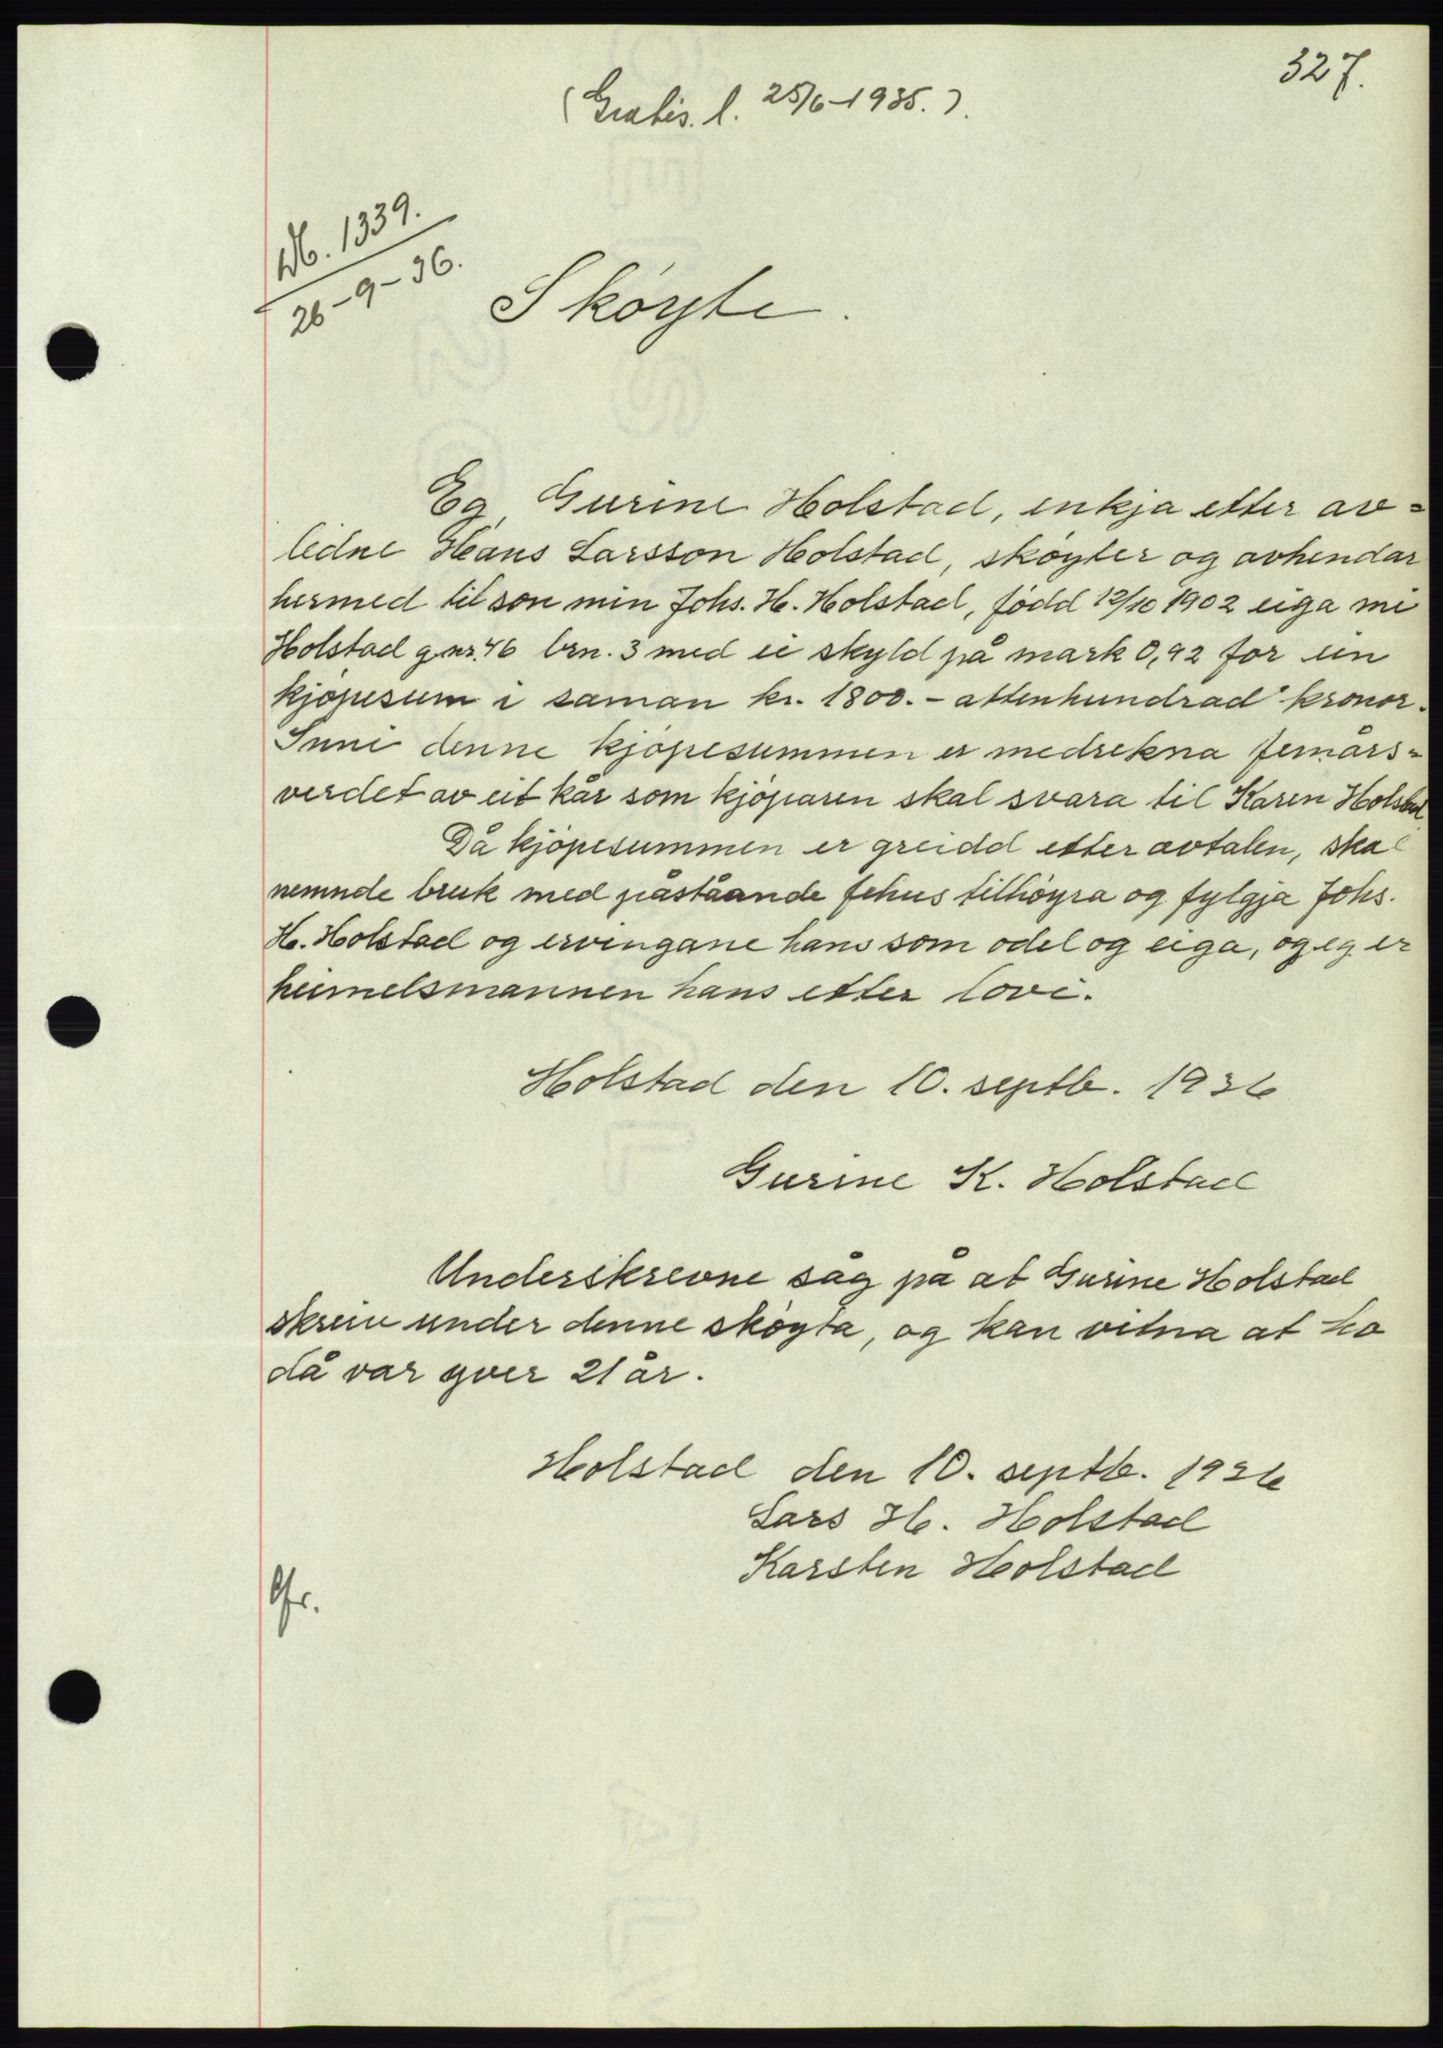 327.
(Gratis. l. 25/6-1935.).
Nb. 1339.
26-9-36.
Skøyte.
Eg, Gurine Holstad, enkja etter av=
lidne Hans Larsson Holstad, skøyter og avhendar
hermed til son min Johs. H. Holstad, fødd 12/10 1902 eiga mi
Holstad g.nr. 46 brn. 3 med ei skyld på mark 0,92 for ein
kjøpesum i saman kr. 1800.- attenhundrad kronor.
Inni denne kjøpesummen er medrekna femårs=
verdet av eit kår som kjøparen skal svara til Karen Holstad.
Då kjøpesummen er greidd etter avtalen, skal
nemnde bruk med påståande fehus tilhøyra og fylgja Johs.
H. Holstad og ervingane hans som odel og eiga, og eg er
heimelsmannen hans etter lovi.
Holstad den 10. septb. 1936
Gurine K. Holstad
Underskrevne såg på at Gurine Holstad
skreiv under denne skøyta, og kan vitna at ho
då var yver 21 år.
Holstad den 10. septb. 1936
Lars H. Holstad
Karsten Holstad